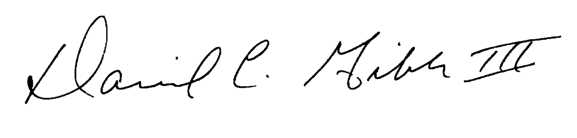 David C. Gibbs III